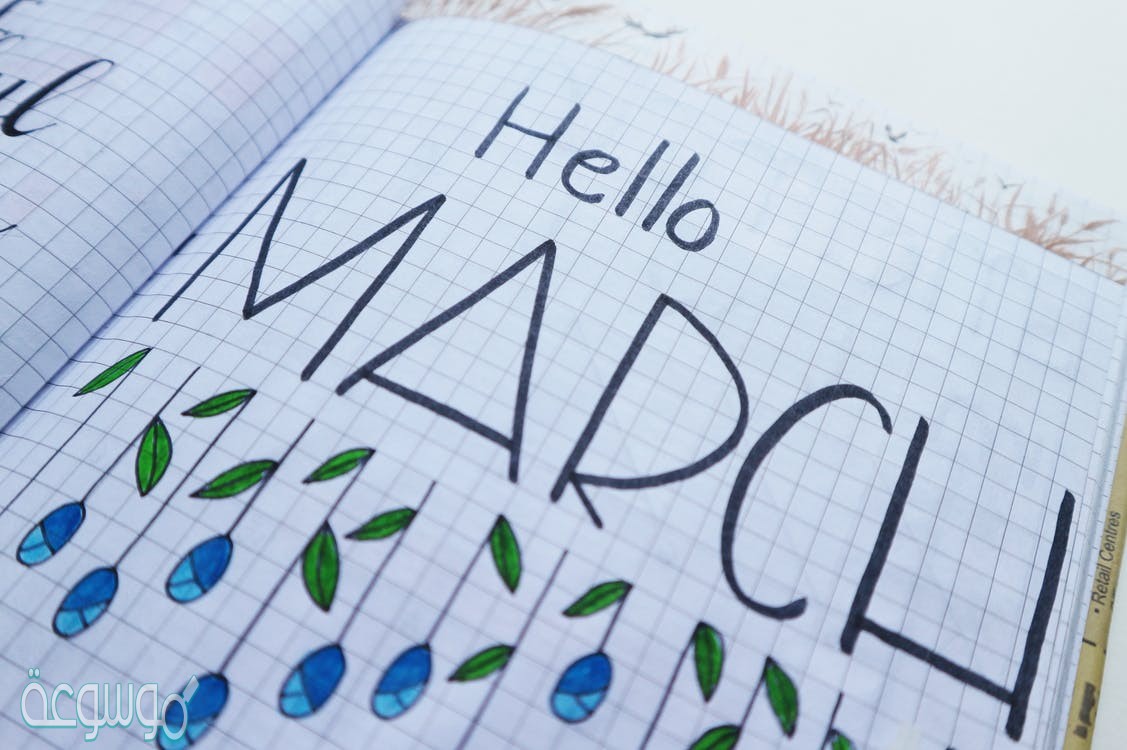 Hello
MARCH
• Retail Centres
موسوعة